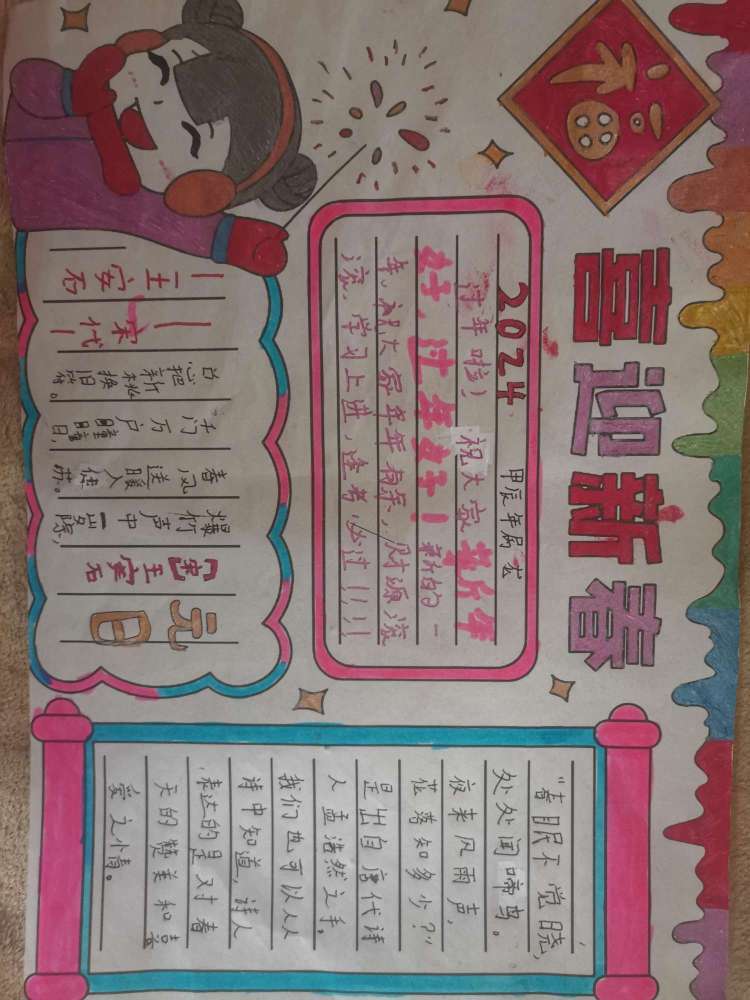 福
喜迎新春
2024 甲辰年属龙
过年啦！祝大家新年
好，过年好！新的一
年，祝大家年年有余，财源滚
滚，学习上进，逢考必过！！！
元日
[宋]王安石
爆竹声中一岁除，
春风送暖入屠苏。
千门万户曈曈日，
总把新桃换旧符。
——宋代——
——王安石
"春眠不觉晓，
处处闻啼鸟。
夜来风雨声，
花落知多少？"
是出自唐代诗
人孟浩然之手。
我们也可以从
诗中知道，诗人
表达的是对春
天的赞美和喜
爱之情。